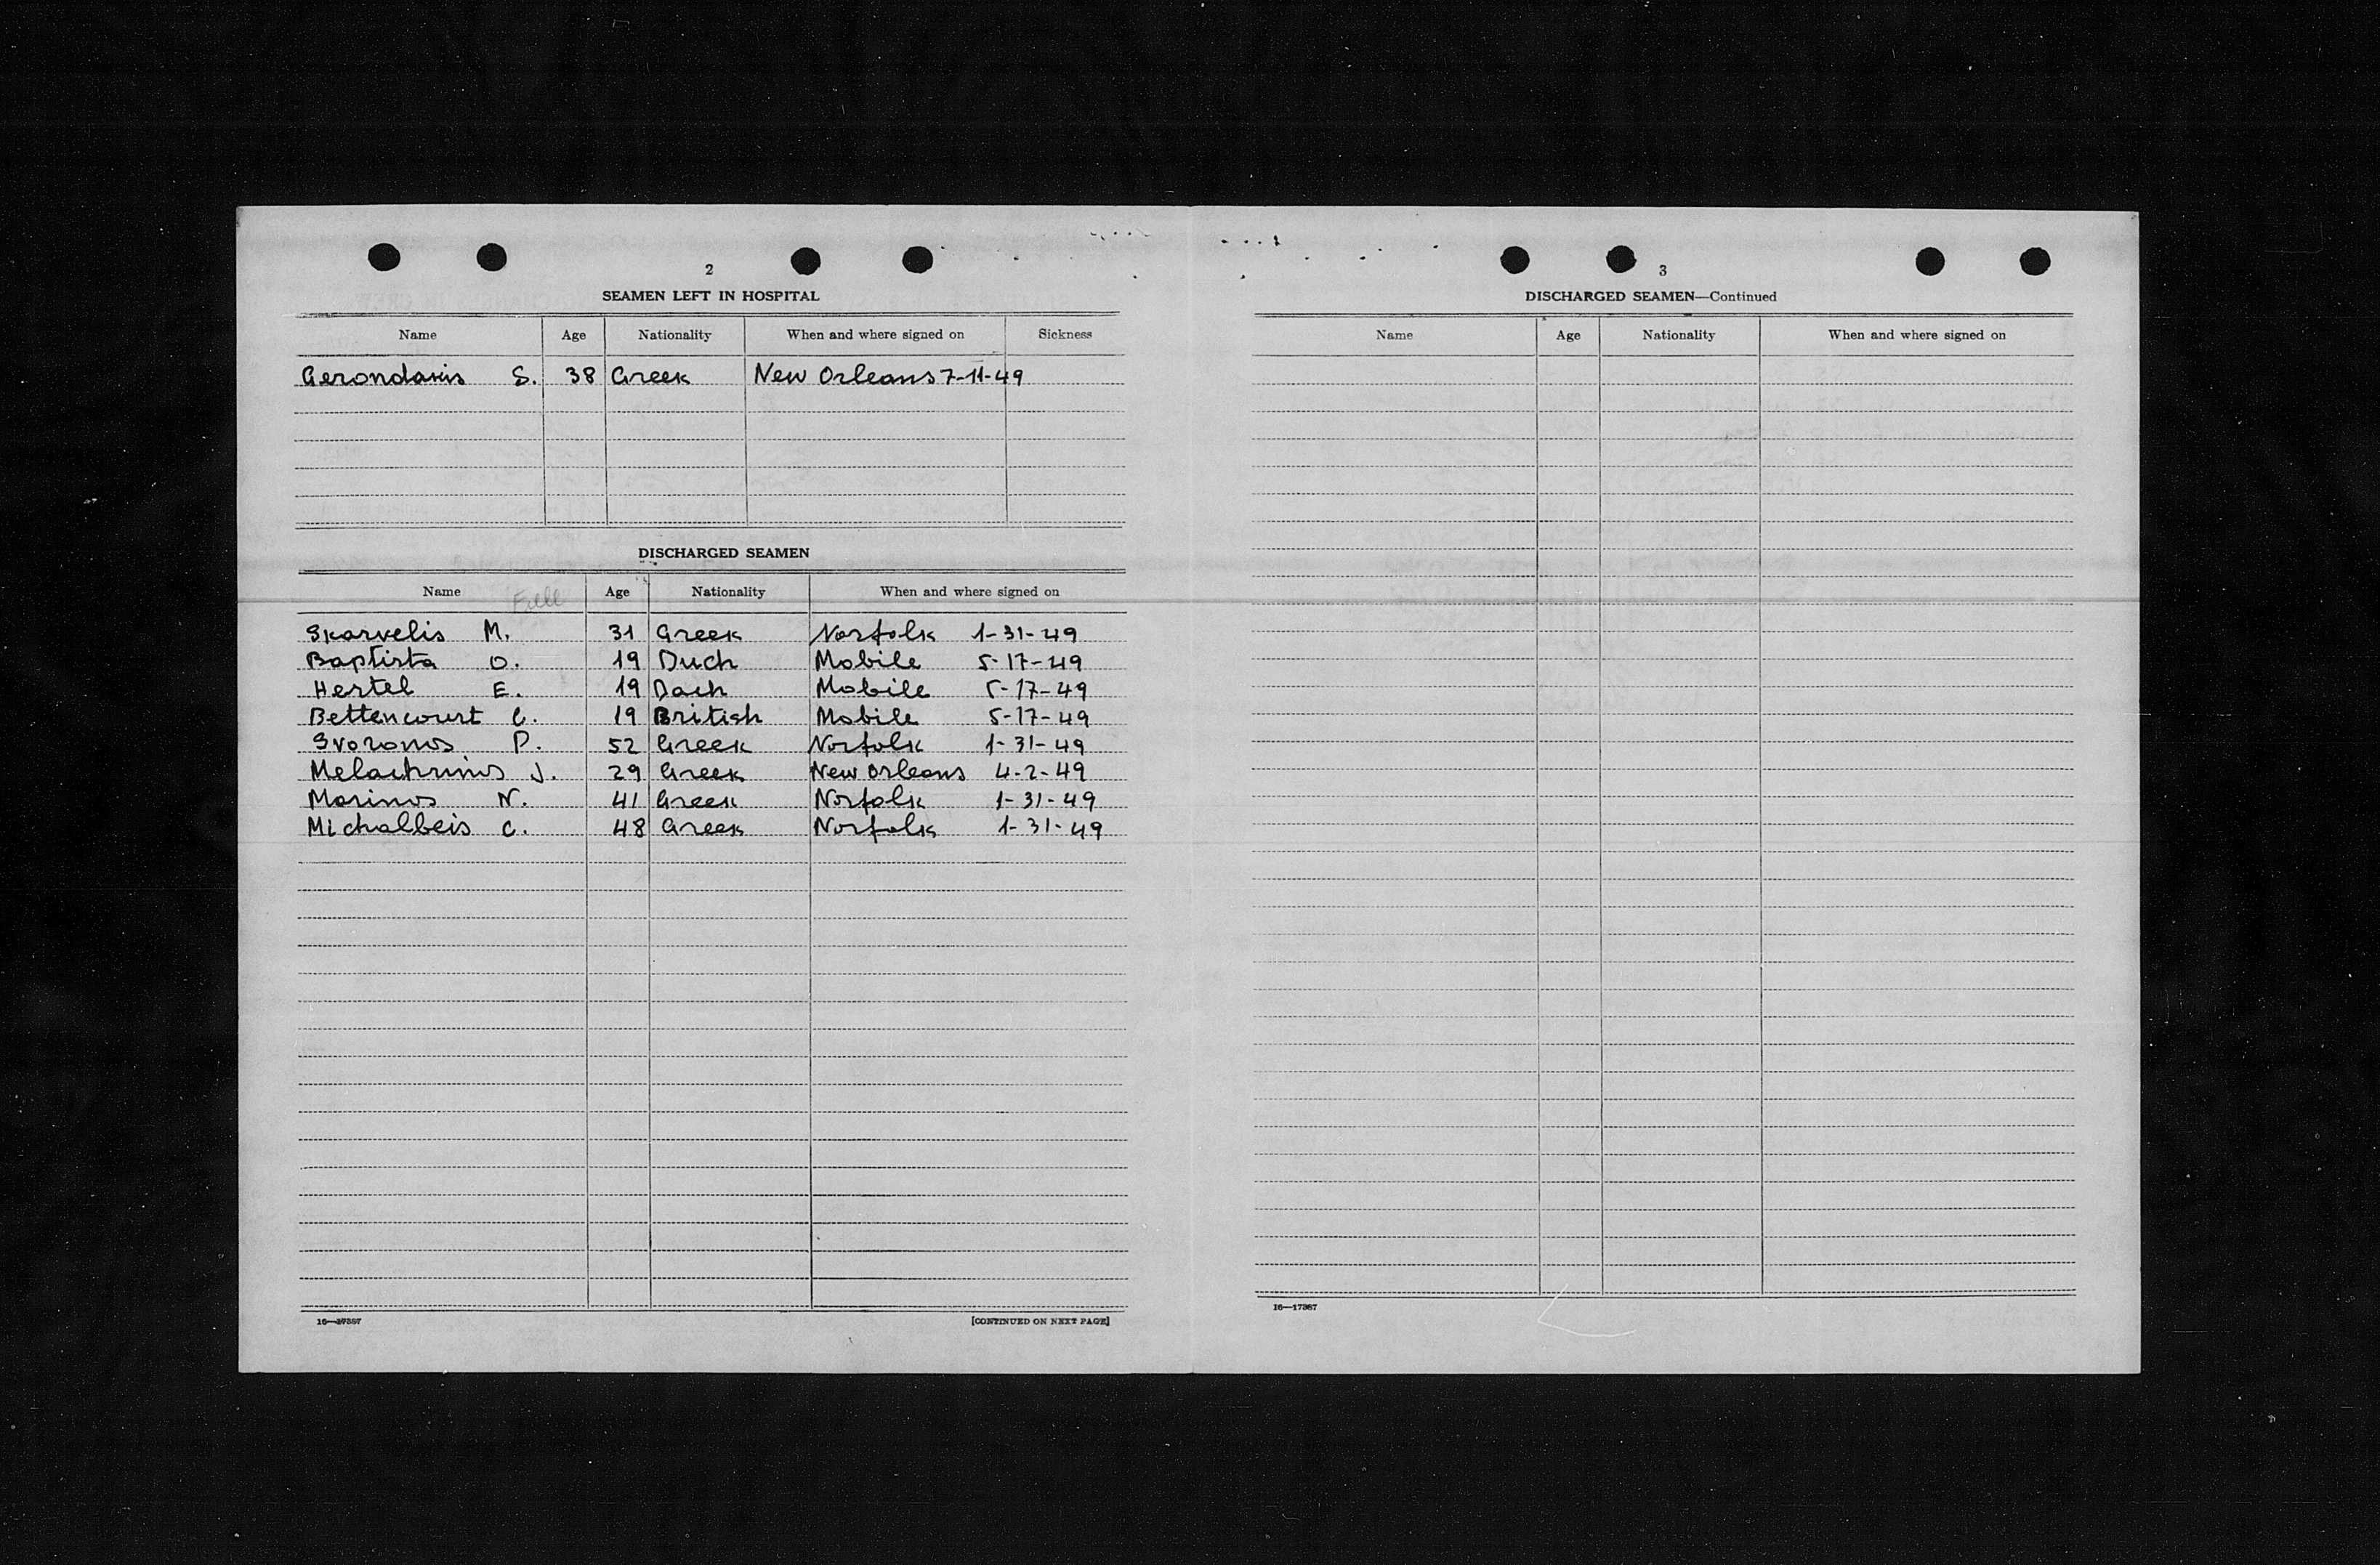 2
SEAMEN LEFT IN HOSPITAL
Name Age Nationality When and where signed on Sickness
Gerondakis S. 38 Greek New Orleans 7-11-49
DISCHARGED SEAMEN
Name Age Nationality When and where signed on
Skarvelis M. 31 Greek Norfolk 1-31-49
Baptista O. 19 Duch Mobile 5-17-49
Hertel E. 19 Dach Mobile 5-17-49
Bettencourt C. 19 British Mobile 5-17-49
Svoronos P. 52 Greek Norfolk 1-31-49
Melachrinos J. 29 Greek New Orleans 4-2-49
Marinos N. 41 Greek Norfolk 1-31-49
Michalbeis C. 48 Greek Norfolk 1-31-49
16—17387
[CONTINUED ON NEXT PAGE]
3
DISCHARGED SEAMEN—Continued
Name Age Nationality When and where signed on
16—17387